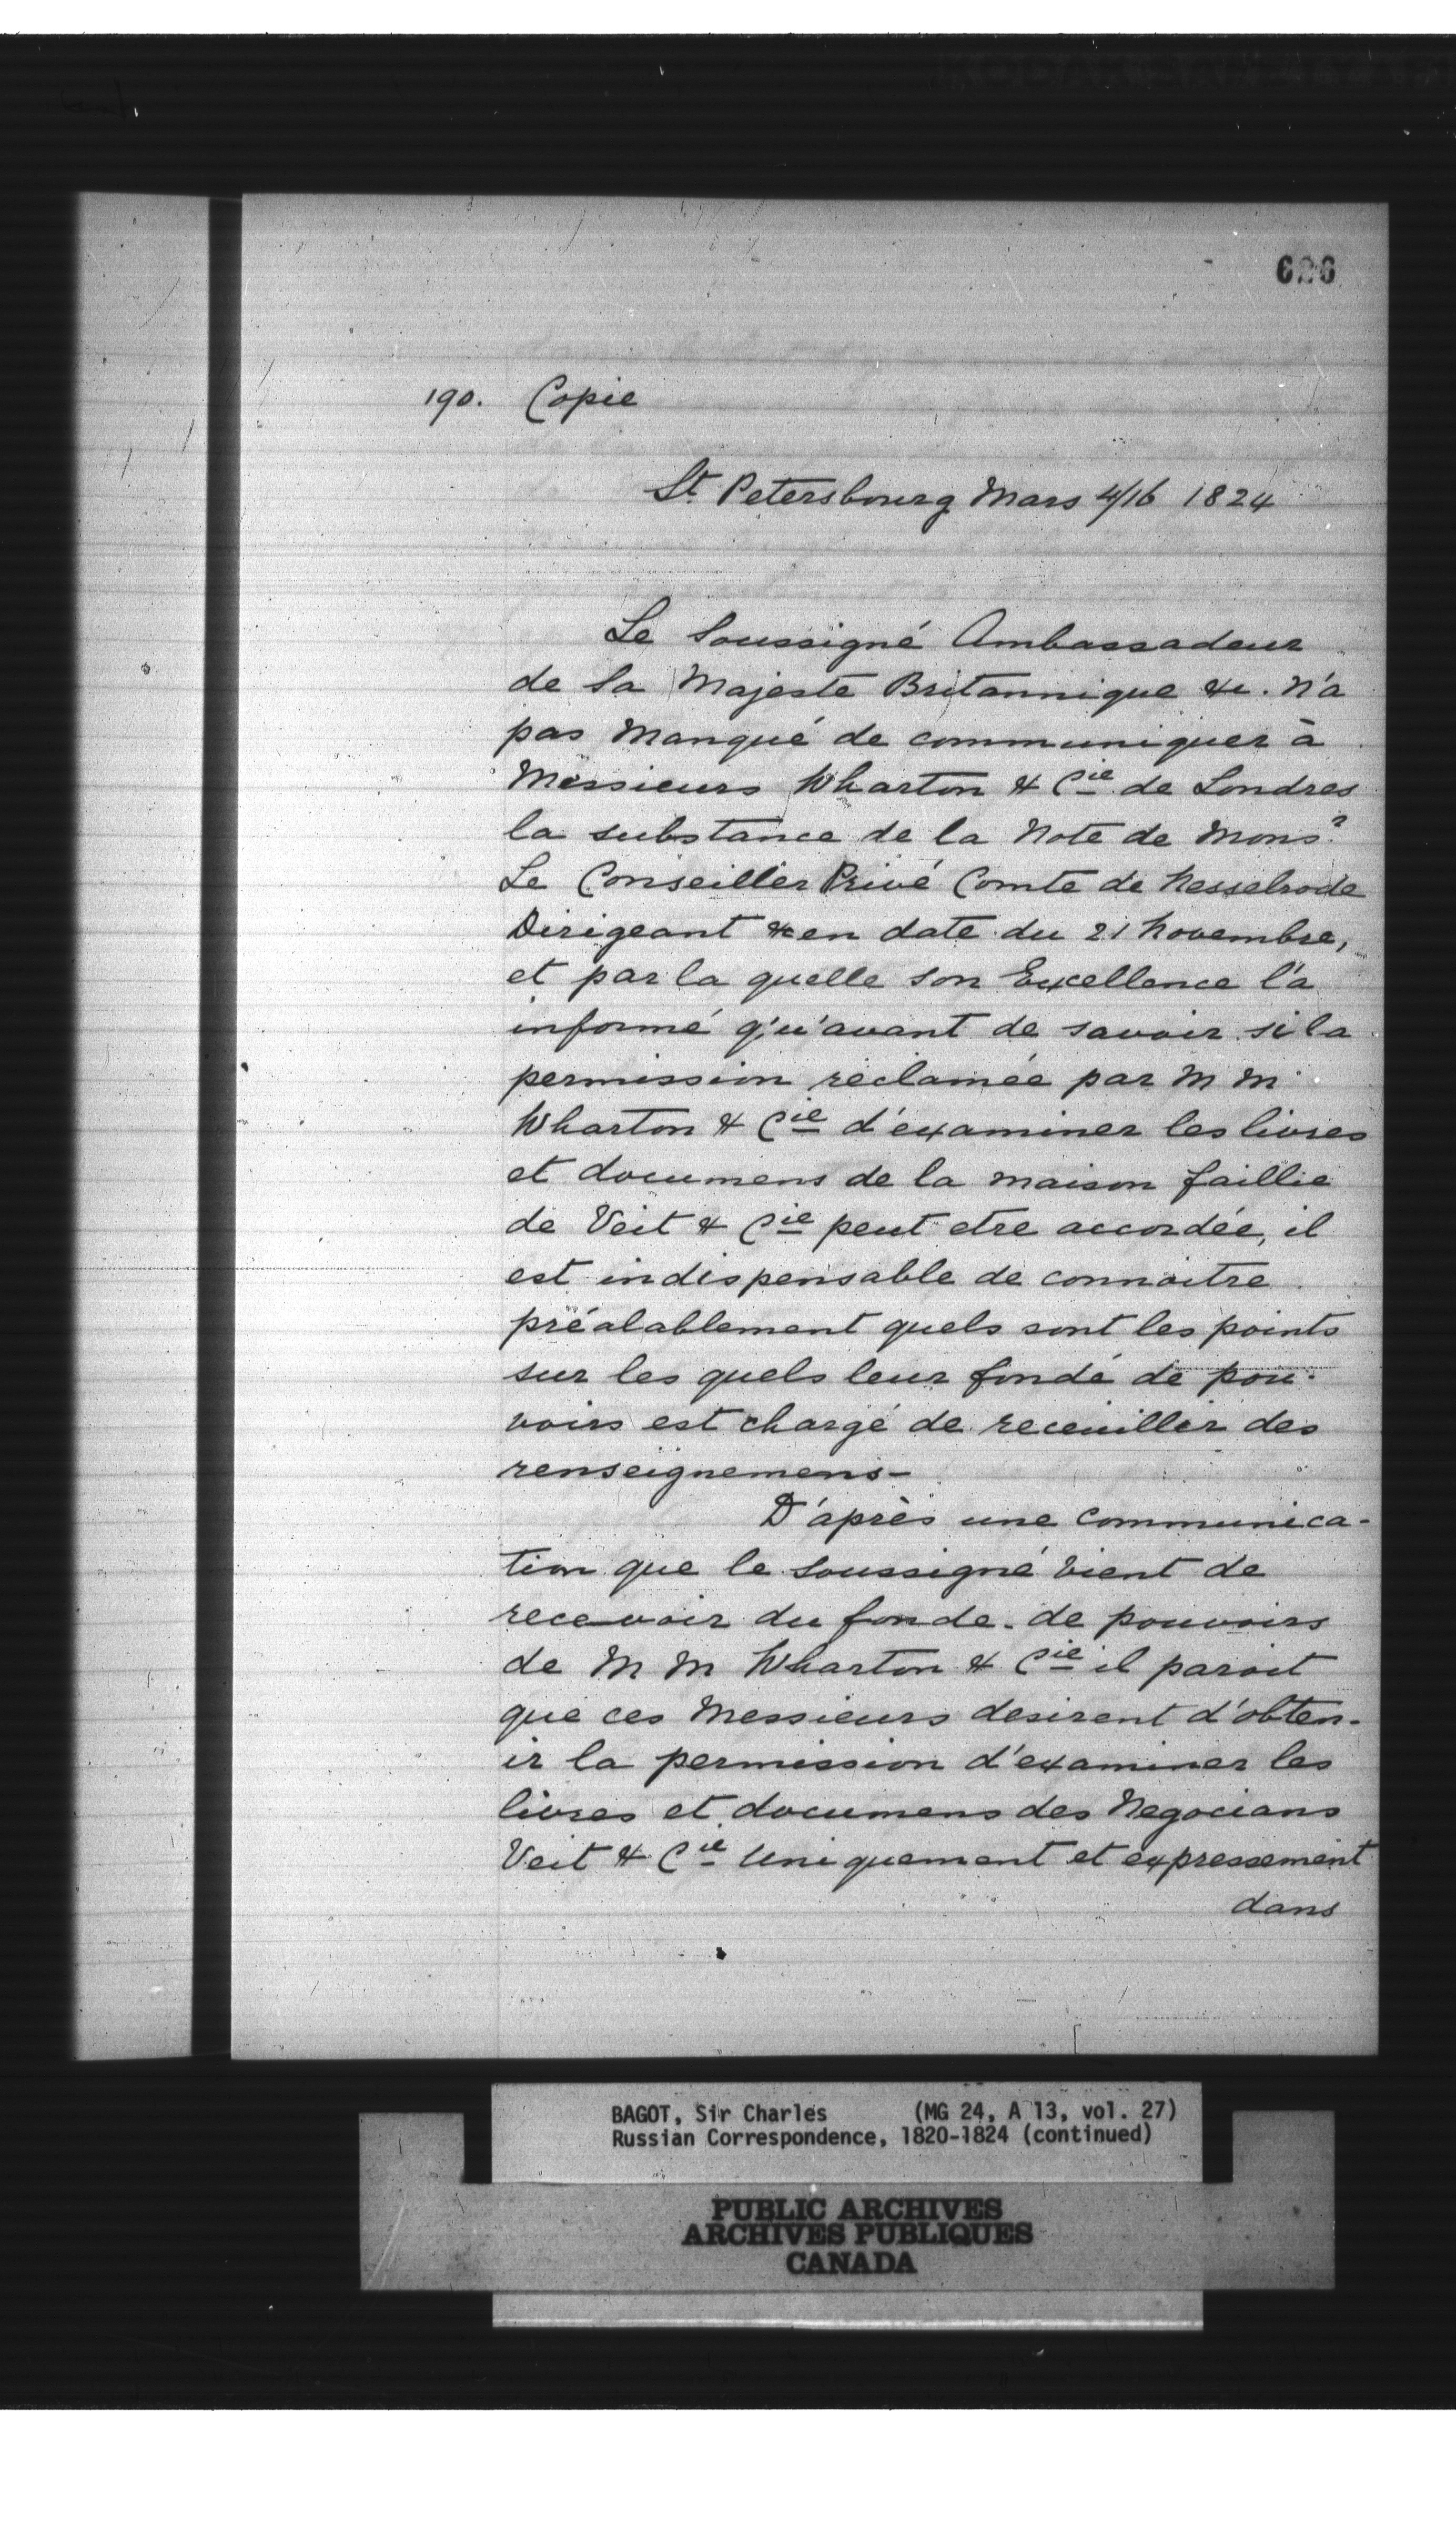 626
190. Copie
St Petersbourg Mars 4/16 1824
Le Soussigné Ambassadeur
de Sa Majesté Britannique &c. n'a
pas manqué de communiquer à
Messieurs Wharton & Cie de Londres
la substance de la Note de Monsr
Le Conseiller Privé Comte de Nesselrode
Dirigeant &c en date du 21 Novembre,
et par la quelle son Excellence l'a
informé qu'avant de savoir si la
permission réclamée par M M
Wharton & Cie d'examiner les livres
et documens de la maison faillie
de Veit & Cie peut etre accordée, il
est indispensable de connaitre
préalablement quels sont les points
sur les quels leur fondé de pou-
voirs est chargé de receuillir des
renseignemens-
D'après une communica-
tion que le Soussigné vient de
recevoir du fonde de pouvoirs
de M M Wharton & Cie il paroit
que ces Messieurs desirent d'obten-
ir la permission d'examiner les
livres et documens des Negocians
Veit & Cie Uniquement et expressement
dans
BAGOT, Sir Charles (MG 24, A 13, vol. 27)
Russian Correspondence, 1820-1824 (continued)
PUBLIC ARCHIVES
ARCHIVES PUBLIQUES
CANADA